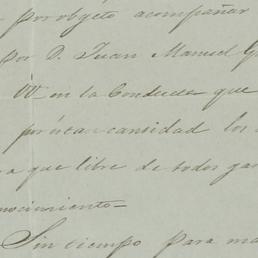 por objeto acompañar
por D. Juan Manuel G
VV. en la Conducta que
por igual cantidad los
a que libre de todos gas
nocimiento
Sin tiempo para ma